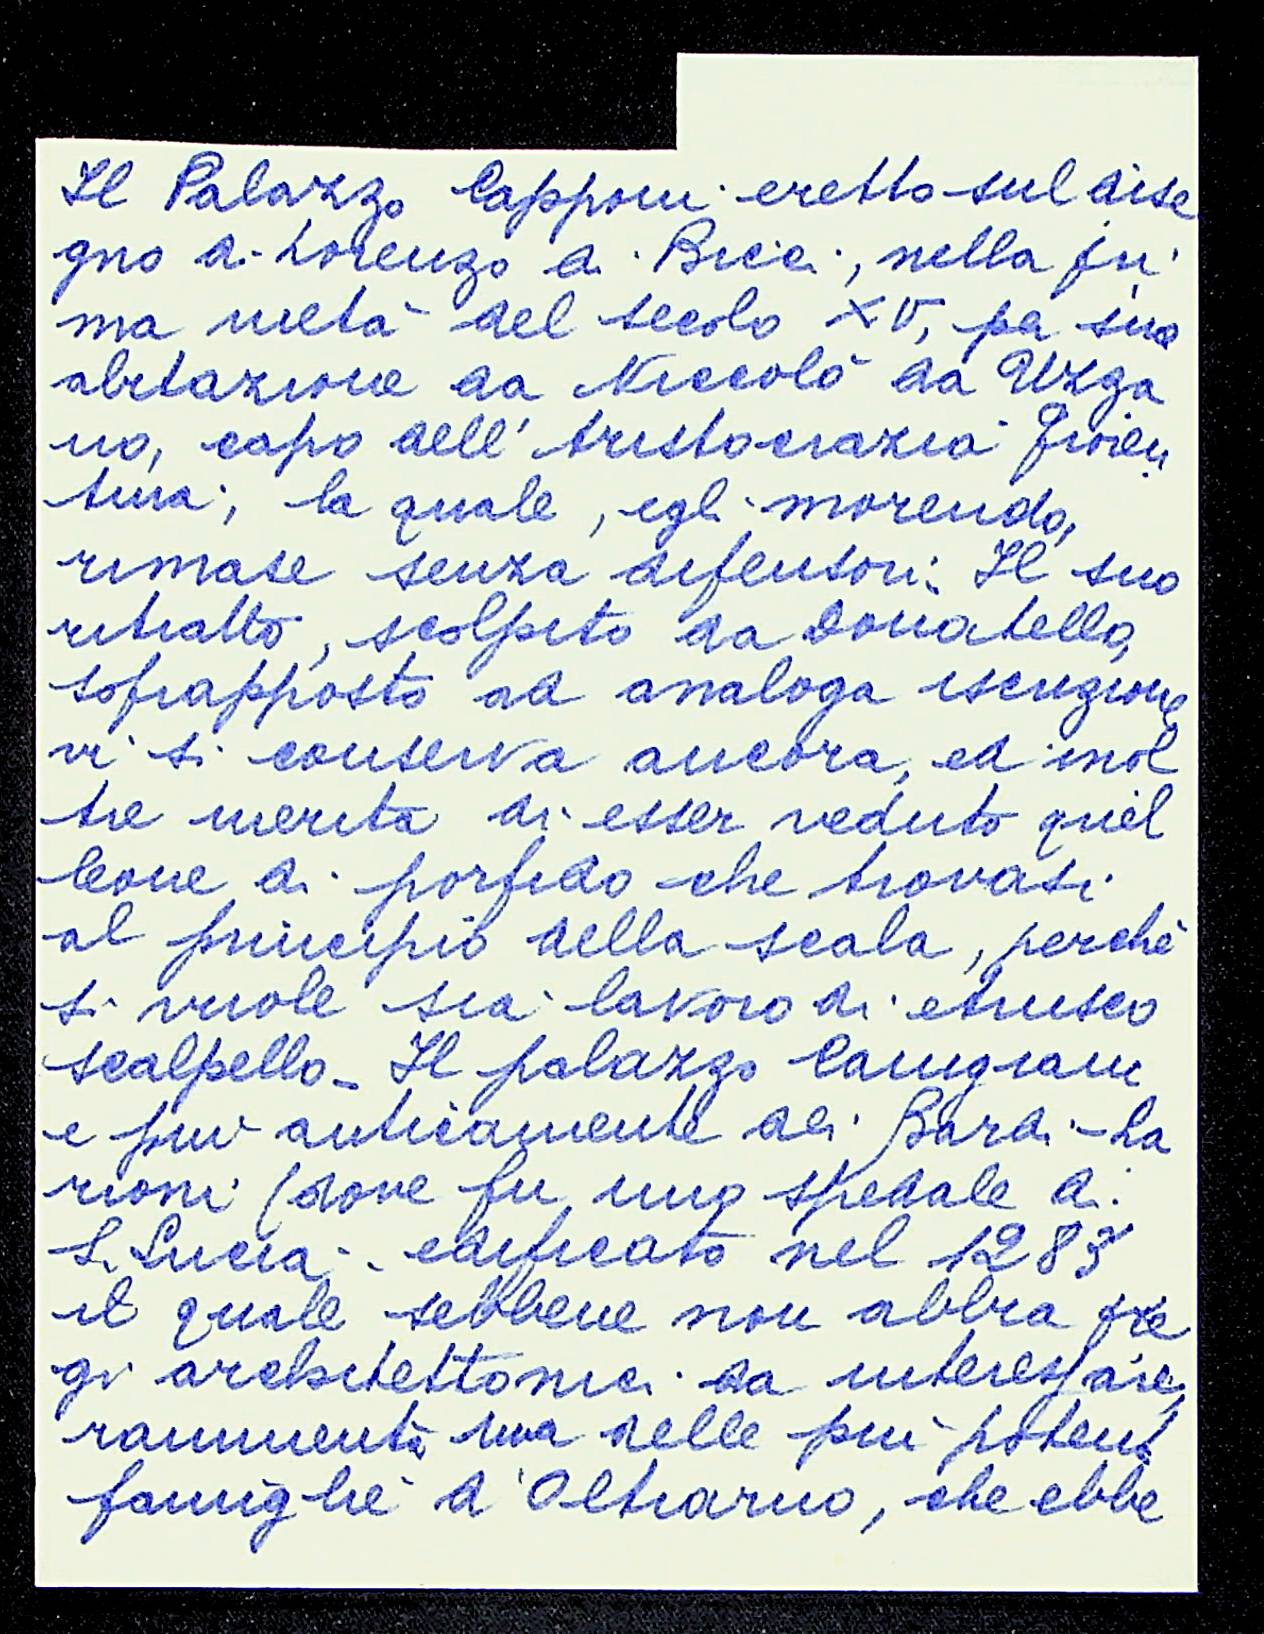 Il Palazzo Capponi eretto sul dise
gno di Lorenzo di Bicci, nella pri
ma metà del secolo XV, per sua
abitazione da Niccolò da Uzza
no, capo dell'Aristocrazia fioren
tina; la quale, egli morendo,
rimase senza difensori: Il suo
ritratto, scolpito da Donatello,
sofrapposto ad analoga iscrizione
vi si conserva ancora, ed inol
tre merita di esser veduto quel
leone di porfido che trovasi
al principio della scala, perchè
si vuole sia lavoro di etrusco
scalpello_ Il palazzo Canigiani
e più anticamente dei Bardi-La
rioni (dove fu uno spedale di
S. Lucia. edificato nel 1283
il quale sebbene non abbia pre
gi architettonici da interessare,
rammenta una delle più potenti
famiglie d'Oltrarno, che ebbe